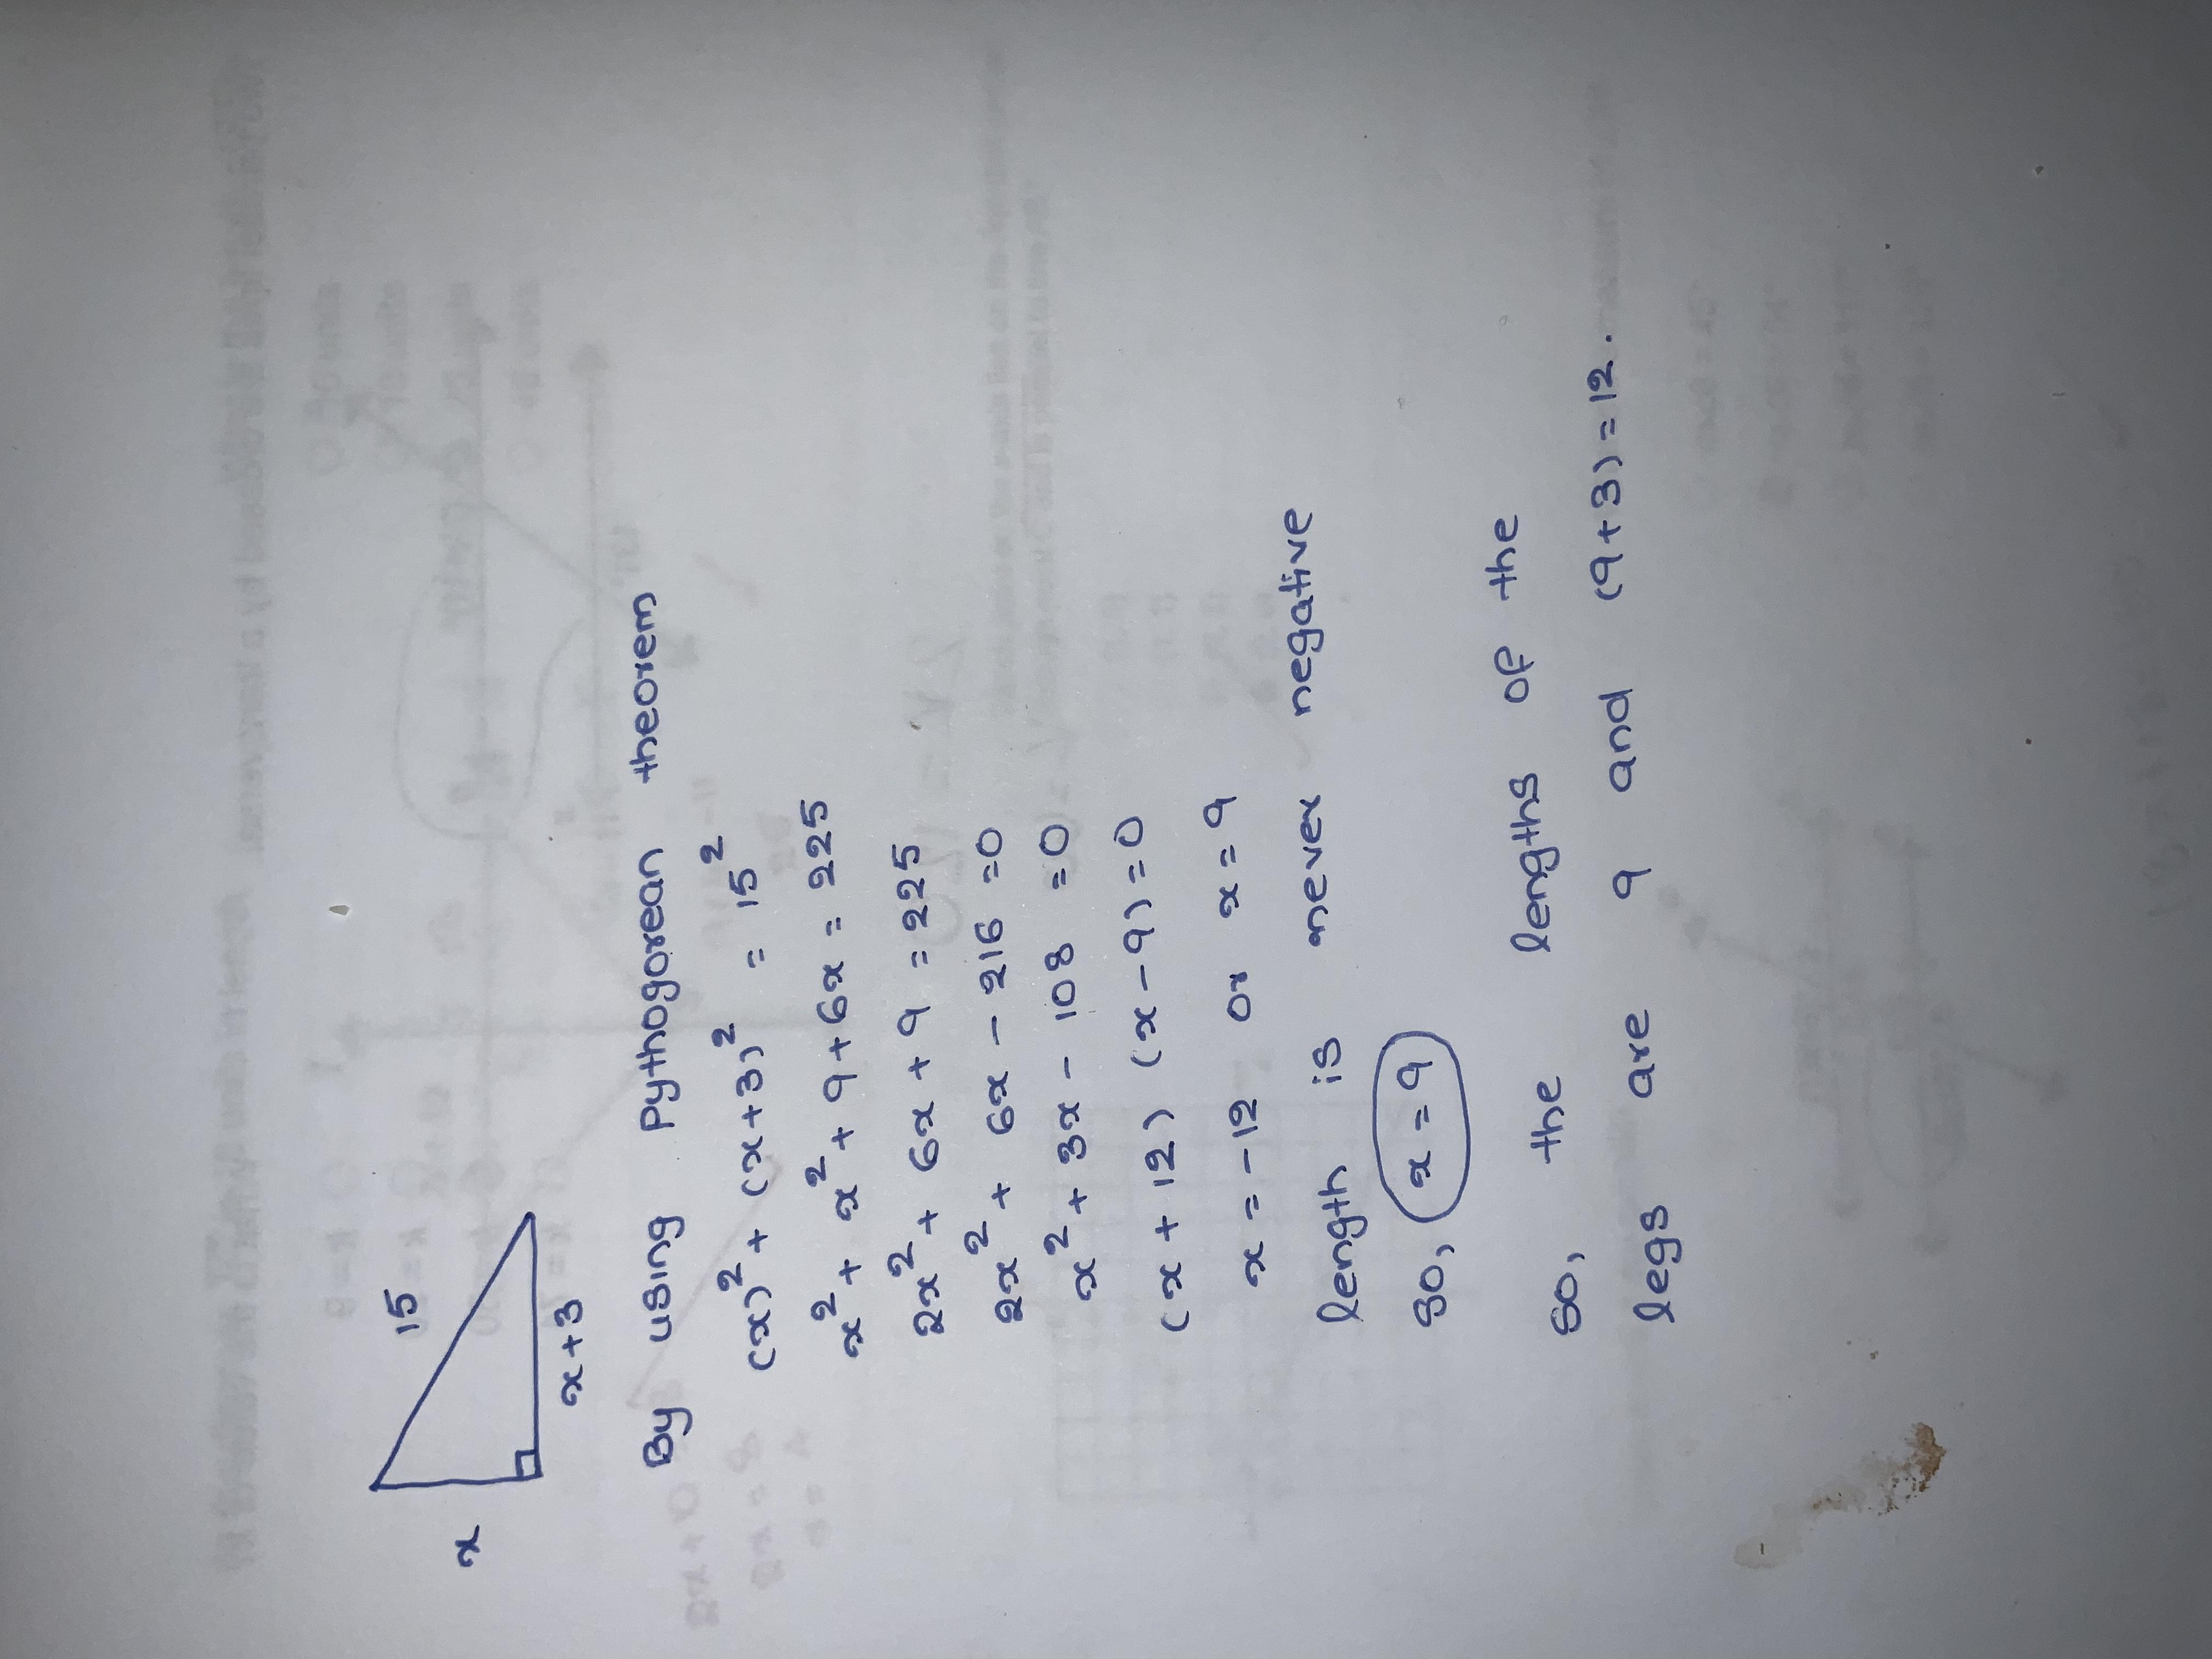 15
x
x+3
By using pythogorean theorem
(x)² + (x+3)² = 15²
x² + x² + 9 + 6x = 225
2x² + 6x + 9 = 225
2x² + 6x - 216 = 0
x² + 3x - 108 = 0
(x + 12) (x - 9) = 0
x = -12 or x = 9
length is never negative
so, x = 9
so, the lengths of the
legs are 9 and (9+3) = 12.